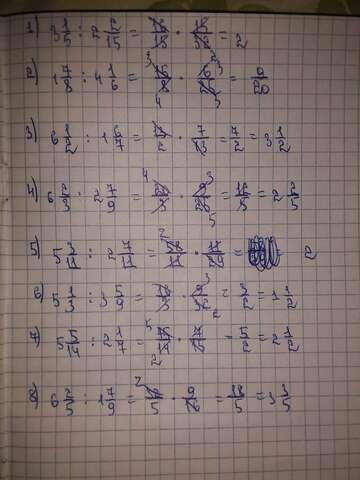 1) 3 1/5 : 2 2/15 = · 15/32 = 2
2) 1 7/8 : 4 1/6 = 15/8 · 6/25 = 9/20
3) 6 1/2 : 1 6/7 = 13/2 · 7/13 = 7/2 = 3 1/2
4) 6 2/3 : 2 7/9 = 20/3 · 9/25 = 12/5 = 2 2/5
5) 5 3/11 : 2 7/11 = 58/11 · 11/29 = 2
6) 5 1/3 : 3 5/9 = 16/3 · 9/32 = 3/2 = 1 1/2
7) 5 5/14 : 2 1/7 = 75/14 · 7/15 = 5/2 = 2 1/2
8) 6 2/5 : 1 7/9 = 32/5 · 9/16 = 18/5 = 3 3/5